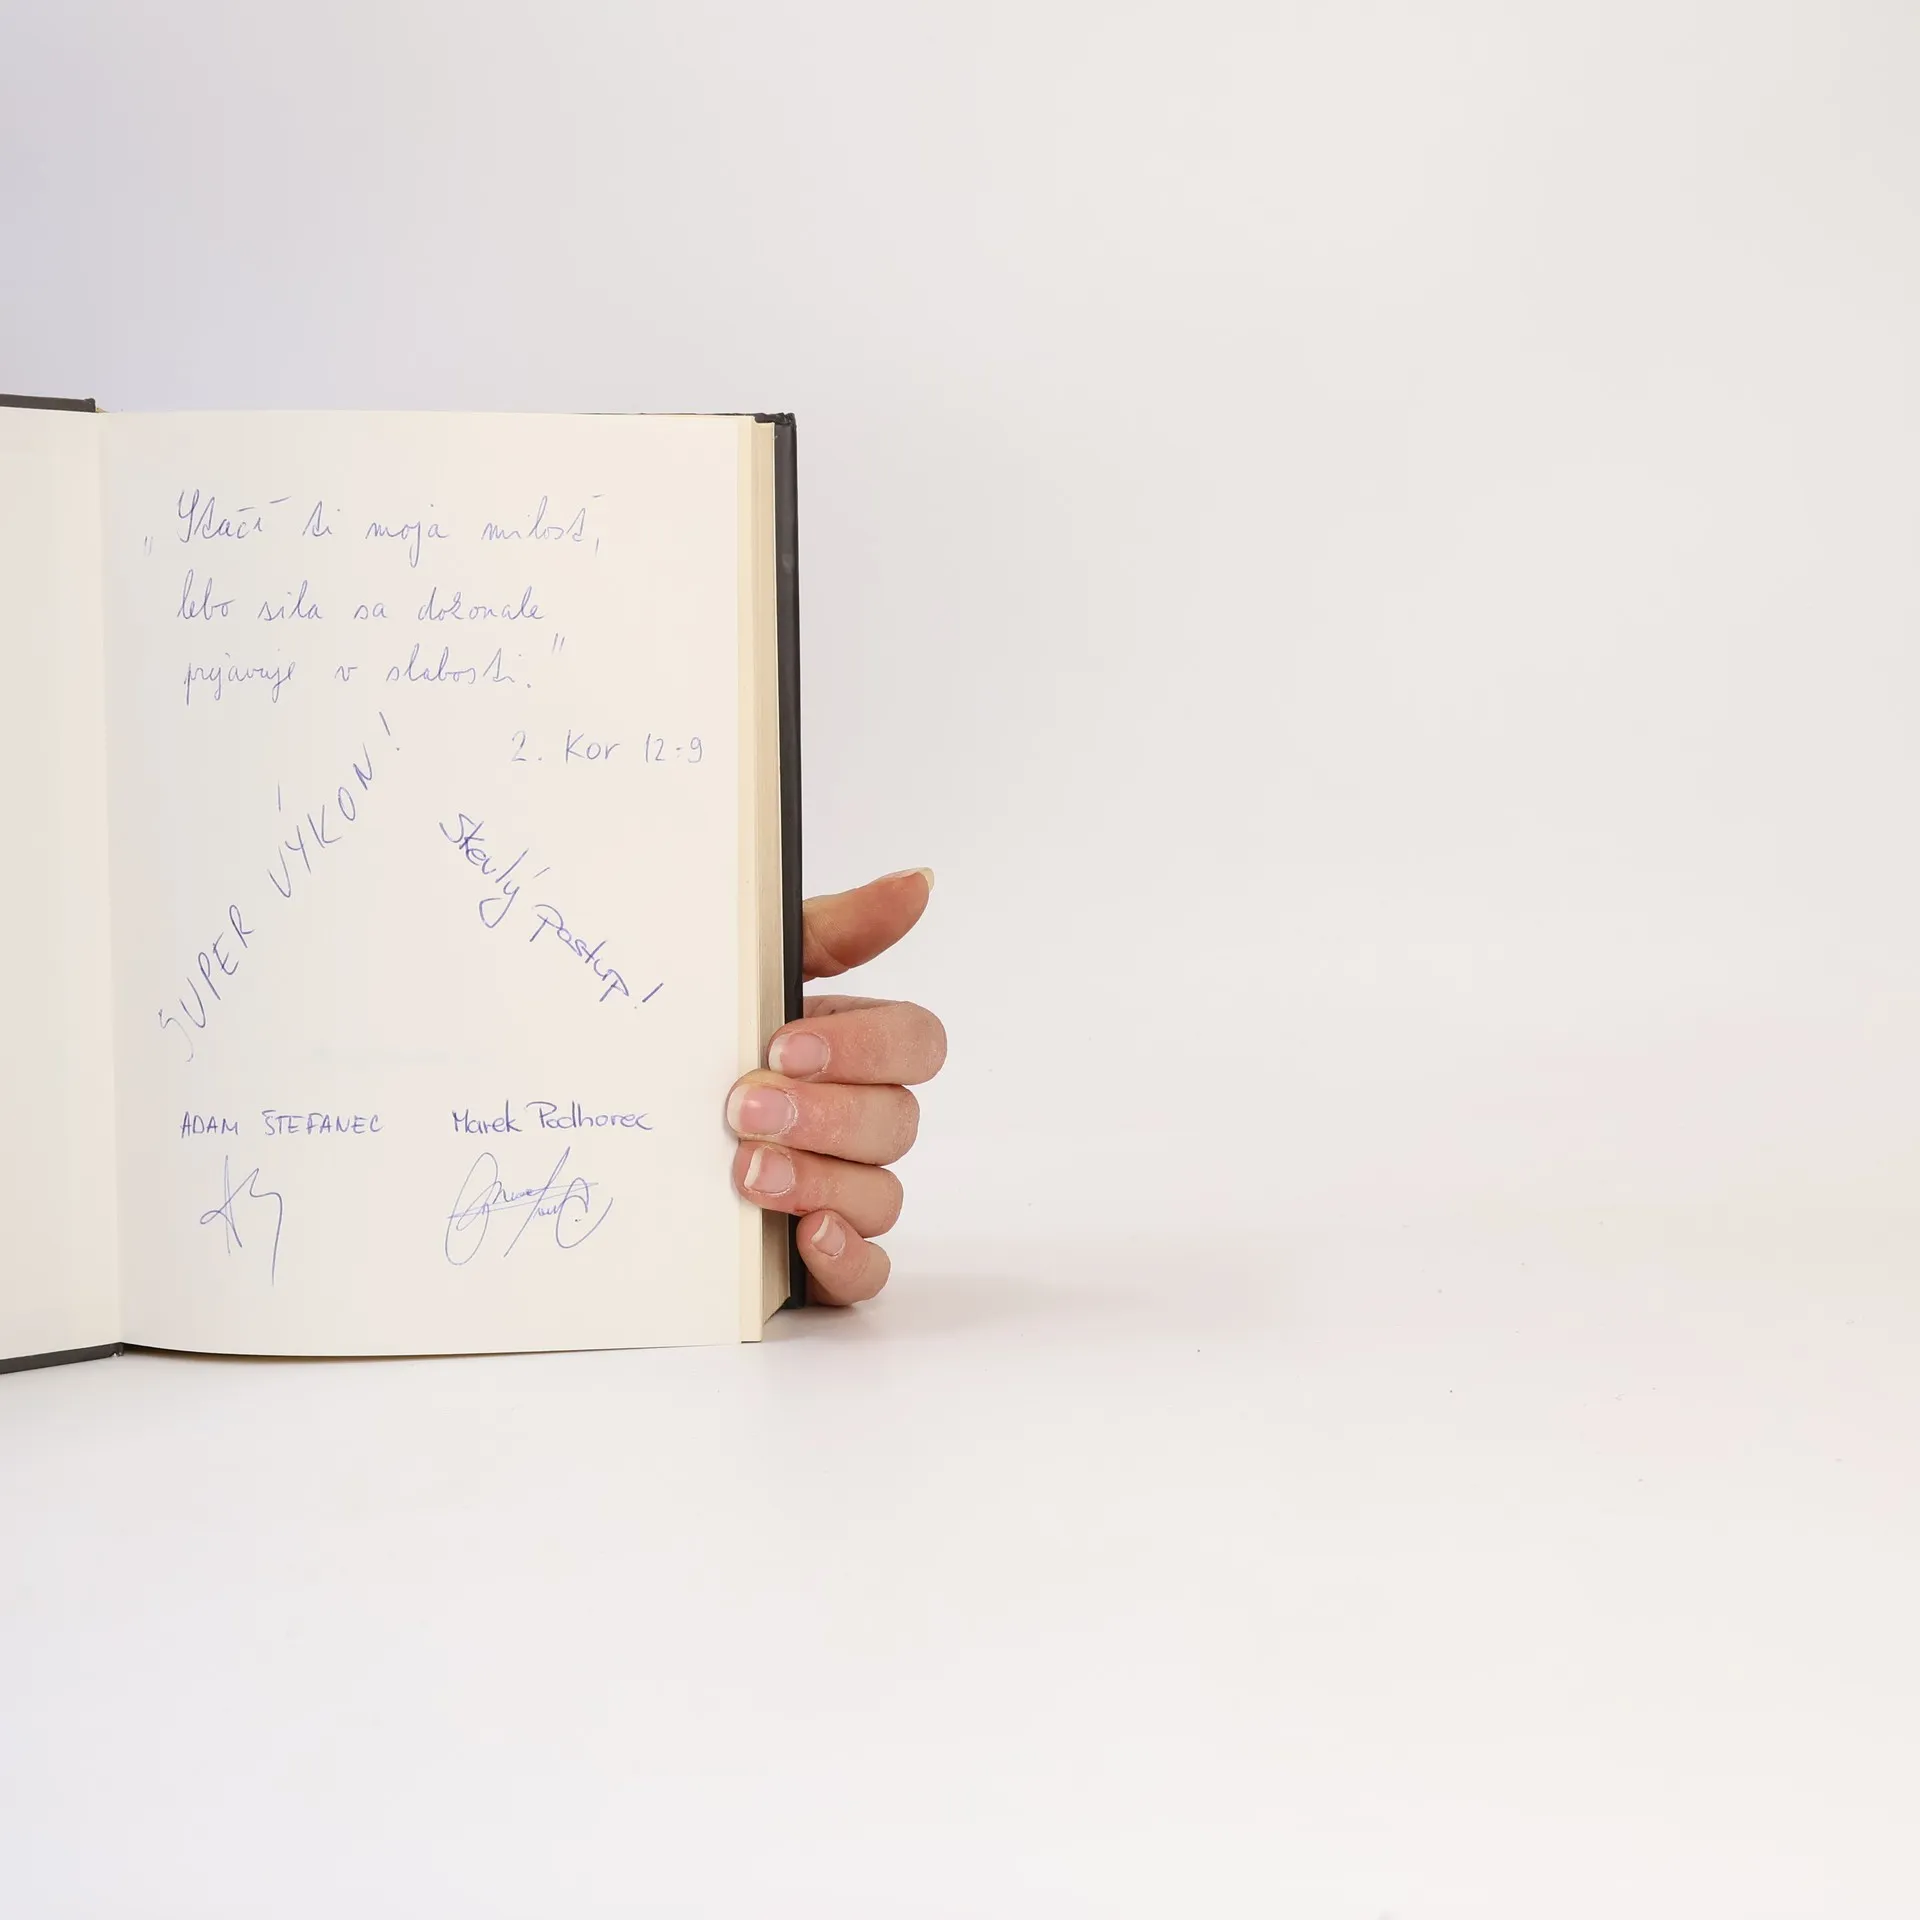 „Stačí ti moja milosť,
lebo sila sa dokonale
prejavuje v slabosti."
2. Kor 12:9
SUPER VÝKON!
Skvlý postup!
ADAM ŠTEFANEC
Marek Podhorec